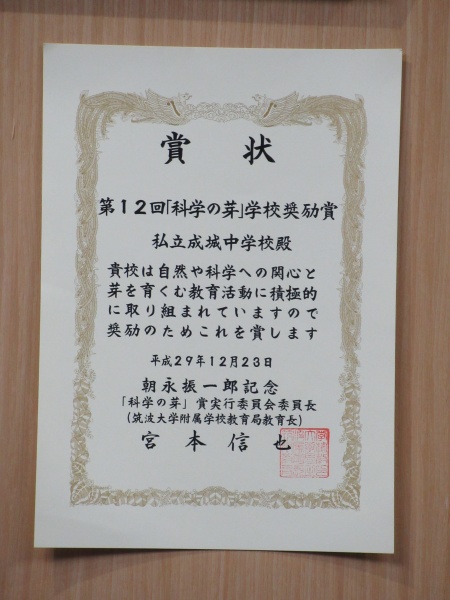 賞状
第12回「科学の芽」学校奨励賞
私立成城中学校殿
貴校は自然や科学への関心と
芽を育くむ教育活動に積極的
に取り組まれていますので
奨励のためこれを賞します
平成29年12月23日
朝永振一郎記念
「科学の芽」賞実行委員会委員長
(筑波大学附属学校教育局教育長)
宮本信也